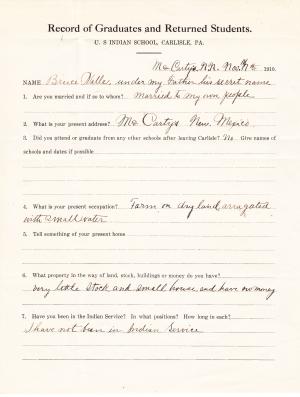 Record of Graduates and Returned Students.
U. S INDIAN SCHOOL, CARLISLE, PA.
Mc Cartys, N.M. Nov. 1910.
NAME Bruce under my Father his secret name
1. Are you married and if so to whom? married to my own people
2. What is your present address? Mc Cartys New Mexico
3. Did you attend or graduate from any other schools after leaving Carlisle? No. Give names
of schools and dates if possible
4. What is your present occupation? Farm on dry land arragated
with small water
5. Tell something of your present home
6. What property in the way of land, stock, buildings or money do you have?
very little stock and small house, and have no money
7. Have you been in the Indian Service? In what positions? How long in each?
I have not been in Indian Service